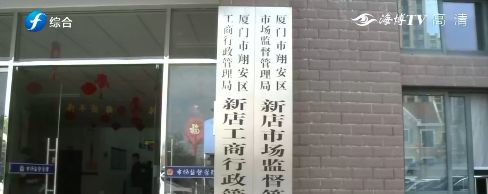 综合
海博TV 高清
厦门市翔安区
工商行政管理局
新店工商行政管
厦门市翔安区
市场监督管理局
新店市场监督管
福